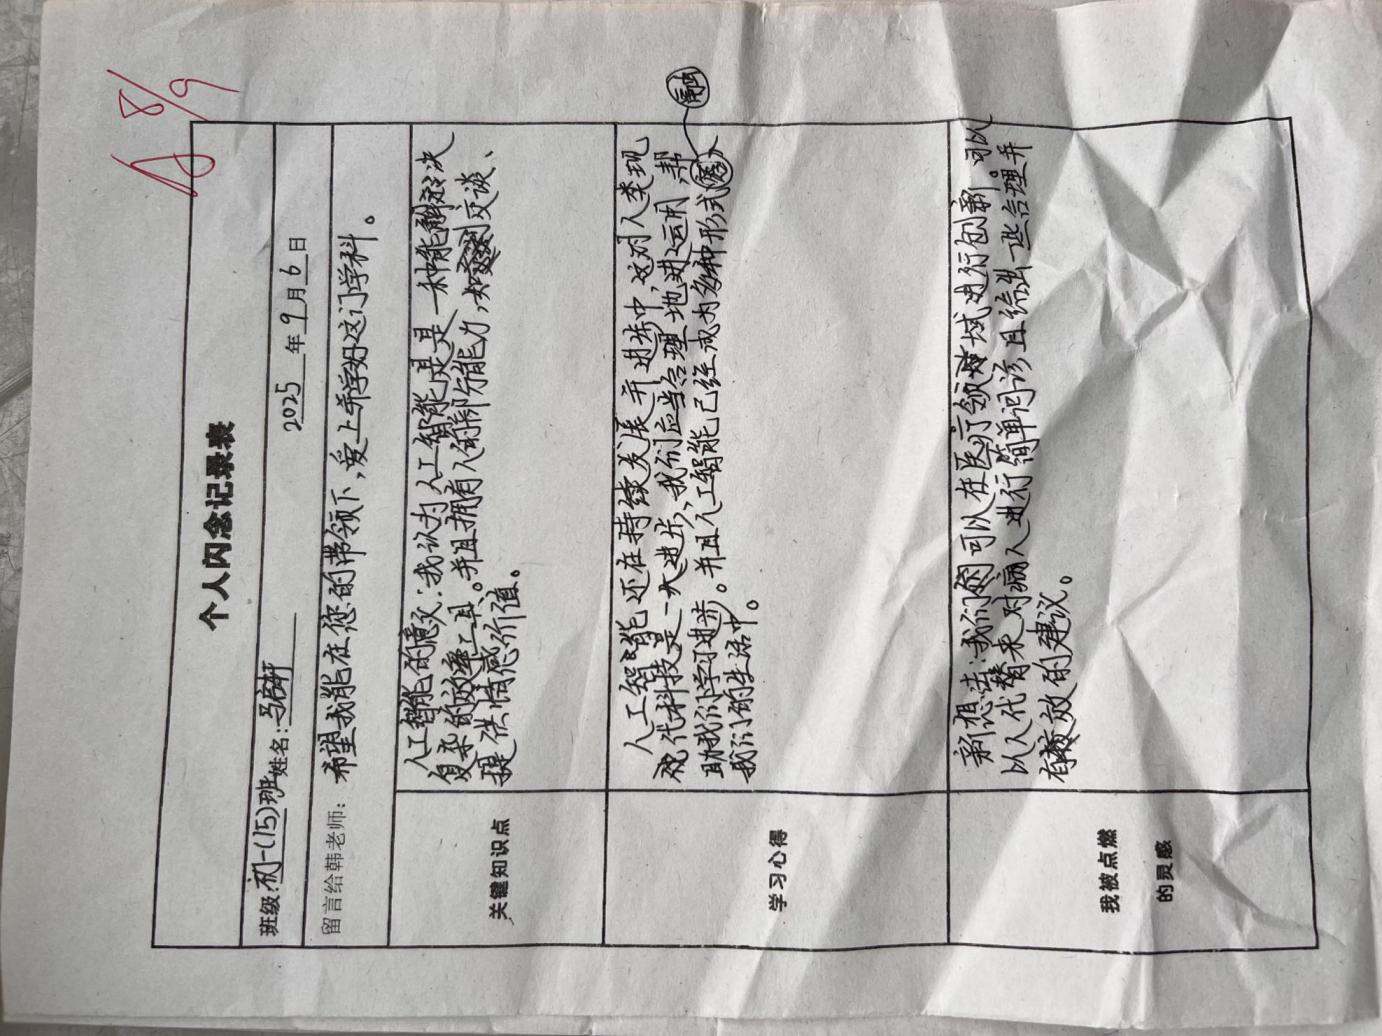 A 8/9
个人闪念记录表
班级:初一(15)班姓名:
2025年9月6日
留言给韩老师: 希望我能在您的带领下,爱上并学好这门学科。
关键知识点
人工智能的意义:我认为人工智能是是一种能解决
复杂的效率工具。并且拥有人的部分能力,如交谈、
提供情感价值。
学习心得
人工智能还在持续发展并进步中,这对人类现
代科技是一大进步,我们应当合理地进运用,帮
助我们学习进步。并且人工智能已经成为多种形式融入
我们的生活中。
我被点燃
的灵感
新想法:我们可以在医疗领域进行创新。可以
以人代替来对病人进行简单问诊,且给出一些合理并
有效的建议。